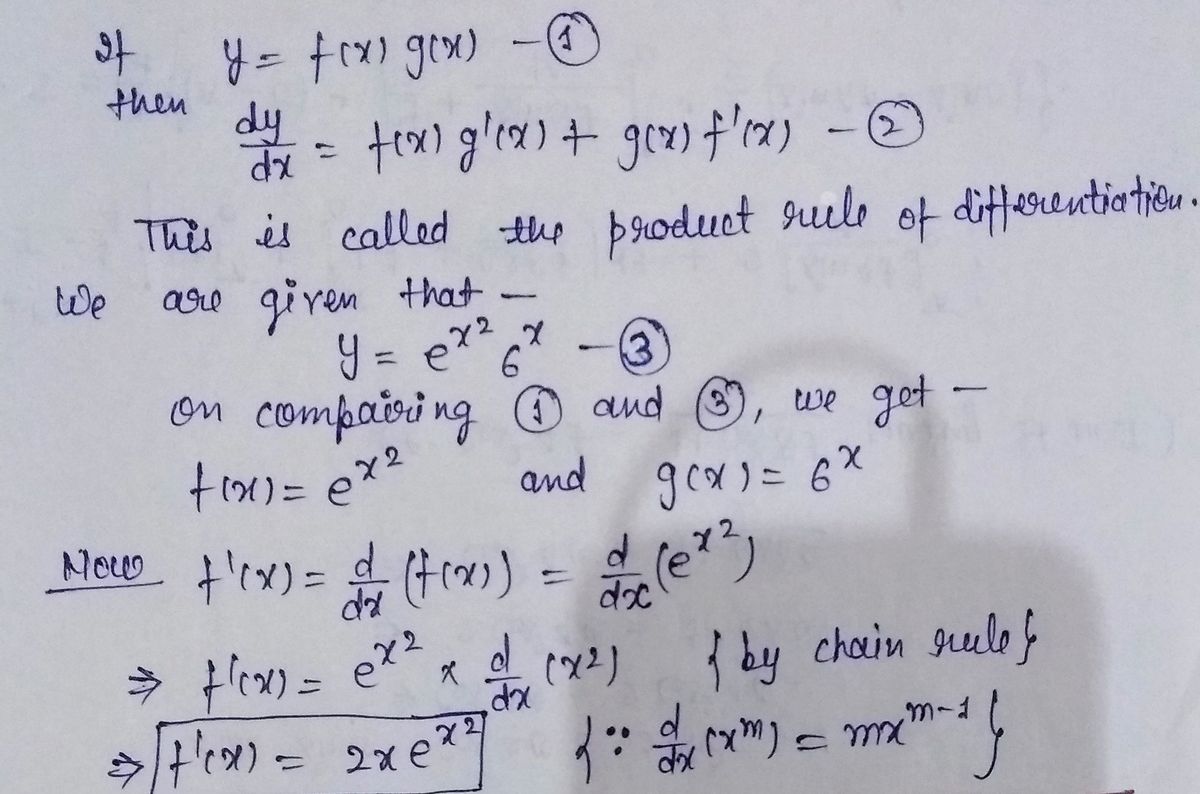 If y = f(x) g(x) — ①
then
dy/dx = f(x) g'(x) + g(x) f'(x) — ②
This is called the product rule of differentiation.
We are given that —
y = e^{x^2} 6^x — ③
on compairing ① and ③, we get —
f(x) = e^{x^2} and g(x) = 6^x
Now f'(x) = d/dx (f(x)) = d/dx (e^{x^2})
⇒ f'(x) = e^{x^2} × d/dx (x^2) {by chain rule}
⇒ f'(x) = 2x e^{x^2} {∵ d/dx (x^m) = mx^{m-1}}